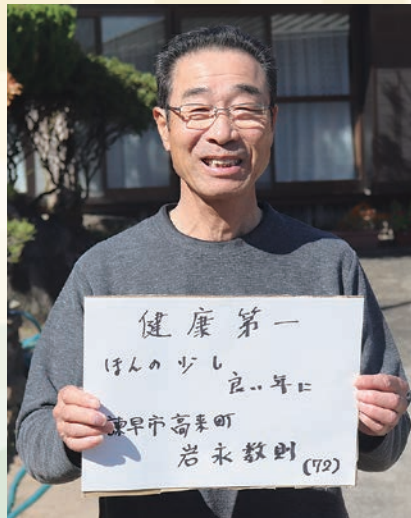 健康第一
ほんの少し
良い年に
諫早市高来町
岩永数則
(72)